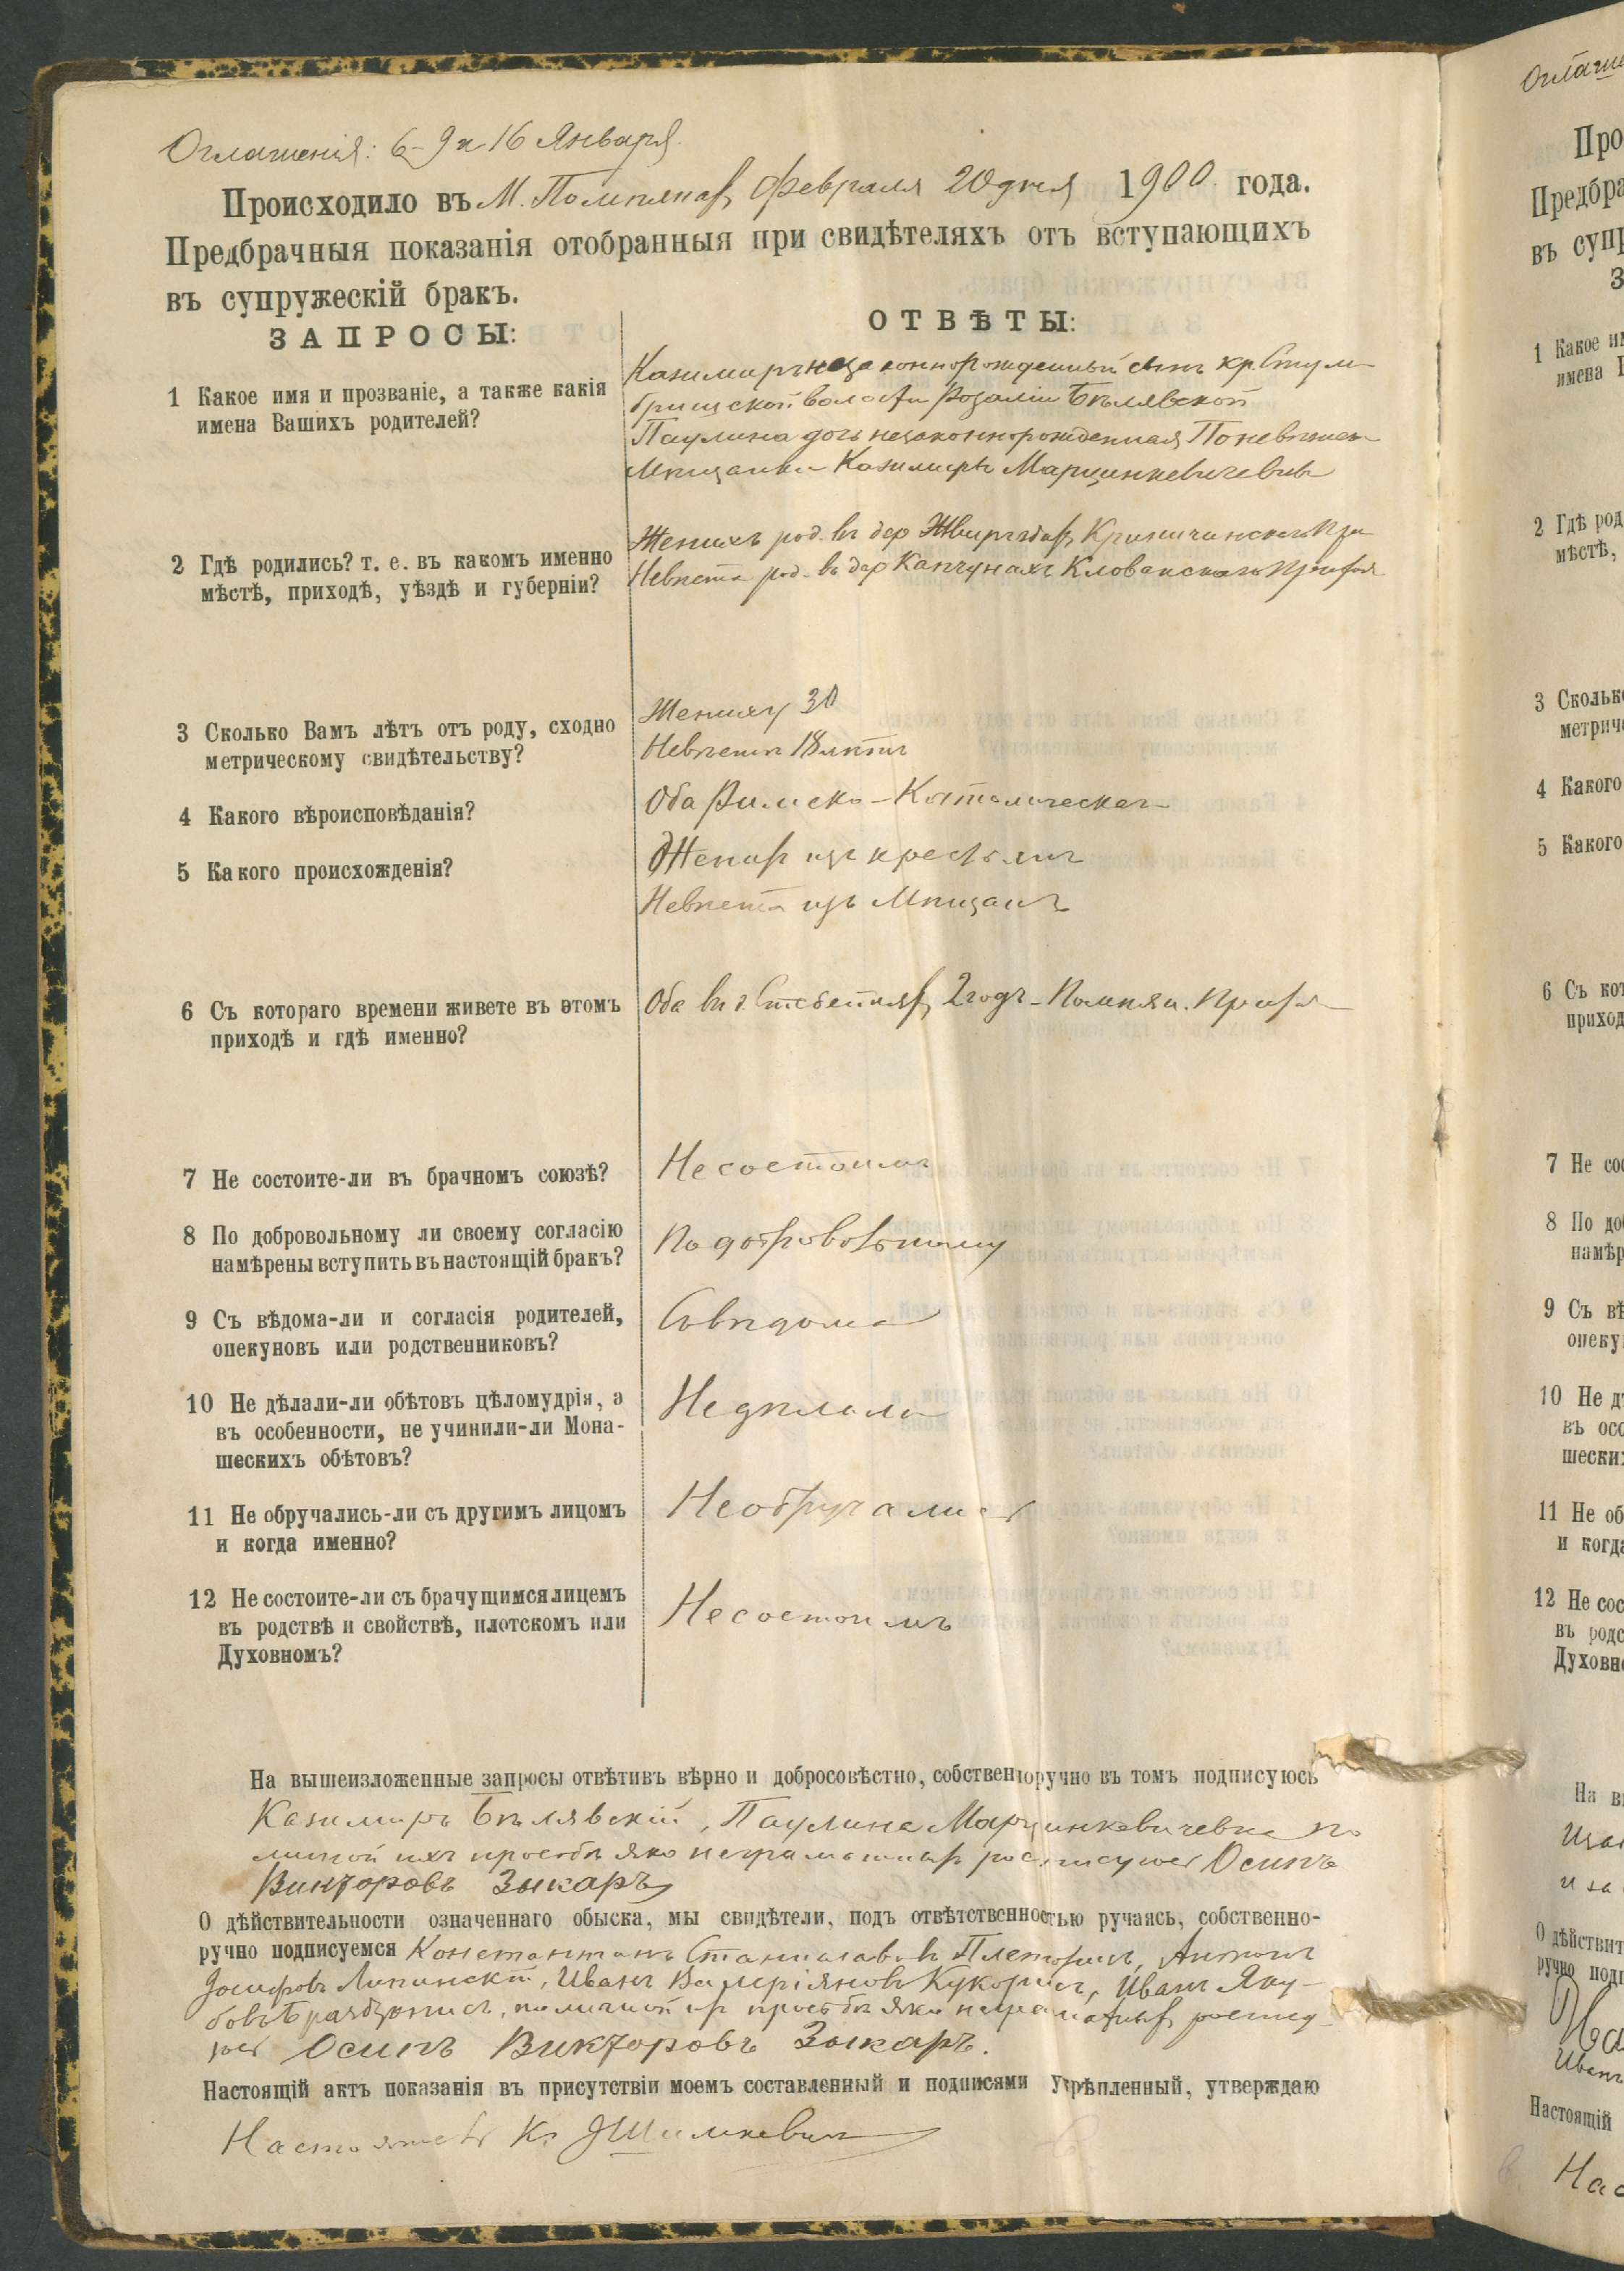 Оглашенія: 6-9 и 16 Января
Происходило въ М. Помпянахъ Февраля 20 дня 1900 года.
Предбрачныя показанія отобранныя при свидѣтеляхъ отъ вступающихъ
въ супружескій бракъ.
ЗАПРОСЫ:
ОТВѢТЫ:
1 Какое имя и прозваніе, а также какія
имена Вашихъ родителей?
Казимиръ незаконнорожденный сынъ кр. Стум-
бришской волости Розаліи Бѣлявской
Паулина дочь незаконнорожденная Поневѣжск.
Мѣщанки Казимиры Марцинкевичевны
2 Гдѣ родились? т. е. въ какомъ именно
мѣстѣ, приходѣ, уѣздѣ и губерніи?
Женихъ род. въ дер
Невѣста род. въ дер Капчунахъ Клованскаго прихода
3 Сколько Вамъ лѣтъ отъ роду, сходно
метрическому свидѣтельству?
Жениху 30
Невѣстѣ 18 лѣтъ
4 Какого вѣроисповѣданія?
Оба Римско-Католическаго
5 Какого происхожденія?
Женихъ изъ крестьянъ
Невѣста изъ Мѣщанъ
6 Съ котораго времени живете въ этомъ
приходѣ и гдѣ именно?
Оба въ 2 годъ - Помпян. Прихода
7 Не состоите-ли въ брачномъ союзѣ?
Не состоимъ
8 По добровольному ли своему согласію
намѣрены вступить въ настоящій бракъ?
По добровольному
9 Съ вѣдома-ли и согласія родителей,
опекуновъ или родственниковъ?
Съ вѣдома
10 Не дѣлали-ли обѣтовъ цѣломудрія, а
въ особенности, не учинили-ли Мона-
шескихъ обѣтовъ?
Не дѣлали
11 Не обручались-ли съ другимъ лицомъ
и когда именно?
Не обручались
12 Не состоите-ли съ брачущимся лицемъ
въ родствѣ и свойствѣ, плотскомъ или
Духовномъ?
Не состоимъ
На вышеизложенные запросы отвѣтивъ вѣрно и добросовѣстно, собственноручно въ томъ подписуюсь
Казимиръ Бѣлявскій, Паулина Марцинкевичевна по
личной ихъ просьбѣ яко неграматныхъ росписуюсь Осипъ
Викторовъ Зыкаръ
О дѣйствительности означеннаго обыска, мы свидѣтели, подъ отвѣтственностью ручаясь, собственно-
ручно подписуемся Константинъ Станиславовъ Антонъ
Іосифовъ Липинскій, Иванъ Валеріяновъ Иванъ Яку-
бовъ по личной ихъ просьбѣ яко неграматныхъ роспису-
юсь Осипъ Викторовъ Зыкаръ.
Настоящій актъ показанія въ присутствіи моемъ составленный и подписями укрѣпленный, утверждаю
Настоятель К.